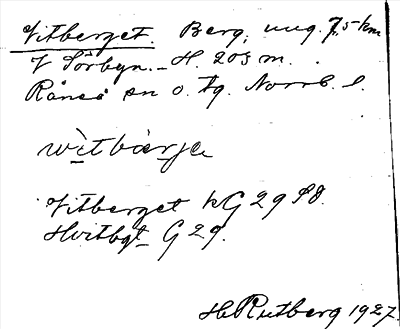 Vitberget. Berg, ung. 7,5 km
V Sörbyn. H. 203 m.
Råneå sn o. tg. Norrb. l.
wìtbàrjə
Vitberget kG 29 SO.
Hvitbgt G 29.
H Rutberg 1927.